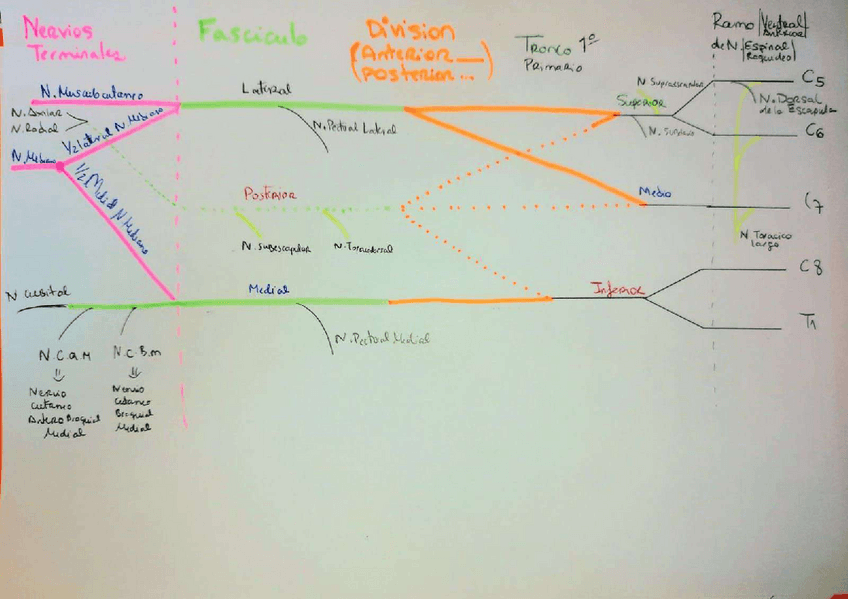 Nervios
Terminales
Fasciculo
Division
(Anterior __)
(Posterior ...)
Tronco 1º
Primario
Ramo |Ventral|
Anterior
de N. |Espinal|
Raquideo
N. Musculocutaneo
N. Axilar
N. Radial
1/2 lateral N Mediano
N. Mediano
1/2 Medial N Mediano
Lateral
N. Pectoral Lateral
Posterior
N. Subescapular
N. Toracodorsal
Medial
N. Pectoral Medial
N cubital
N.C.a.M
Nervio
cutaneo
Antero Braquial
Medial
N.C.B.m
Nervio
cutaneo
Braquial
Medial
N Supraescapular
Superior
N. Subclavio
Medio
Inferior
C5
N. Dorsal
de la Escapula
C6
C7
N. Toracico
largo
C8
T1